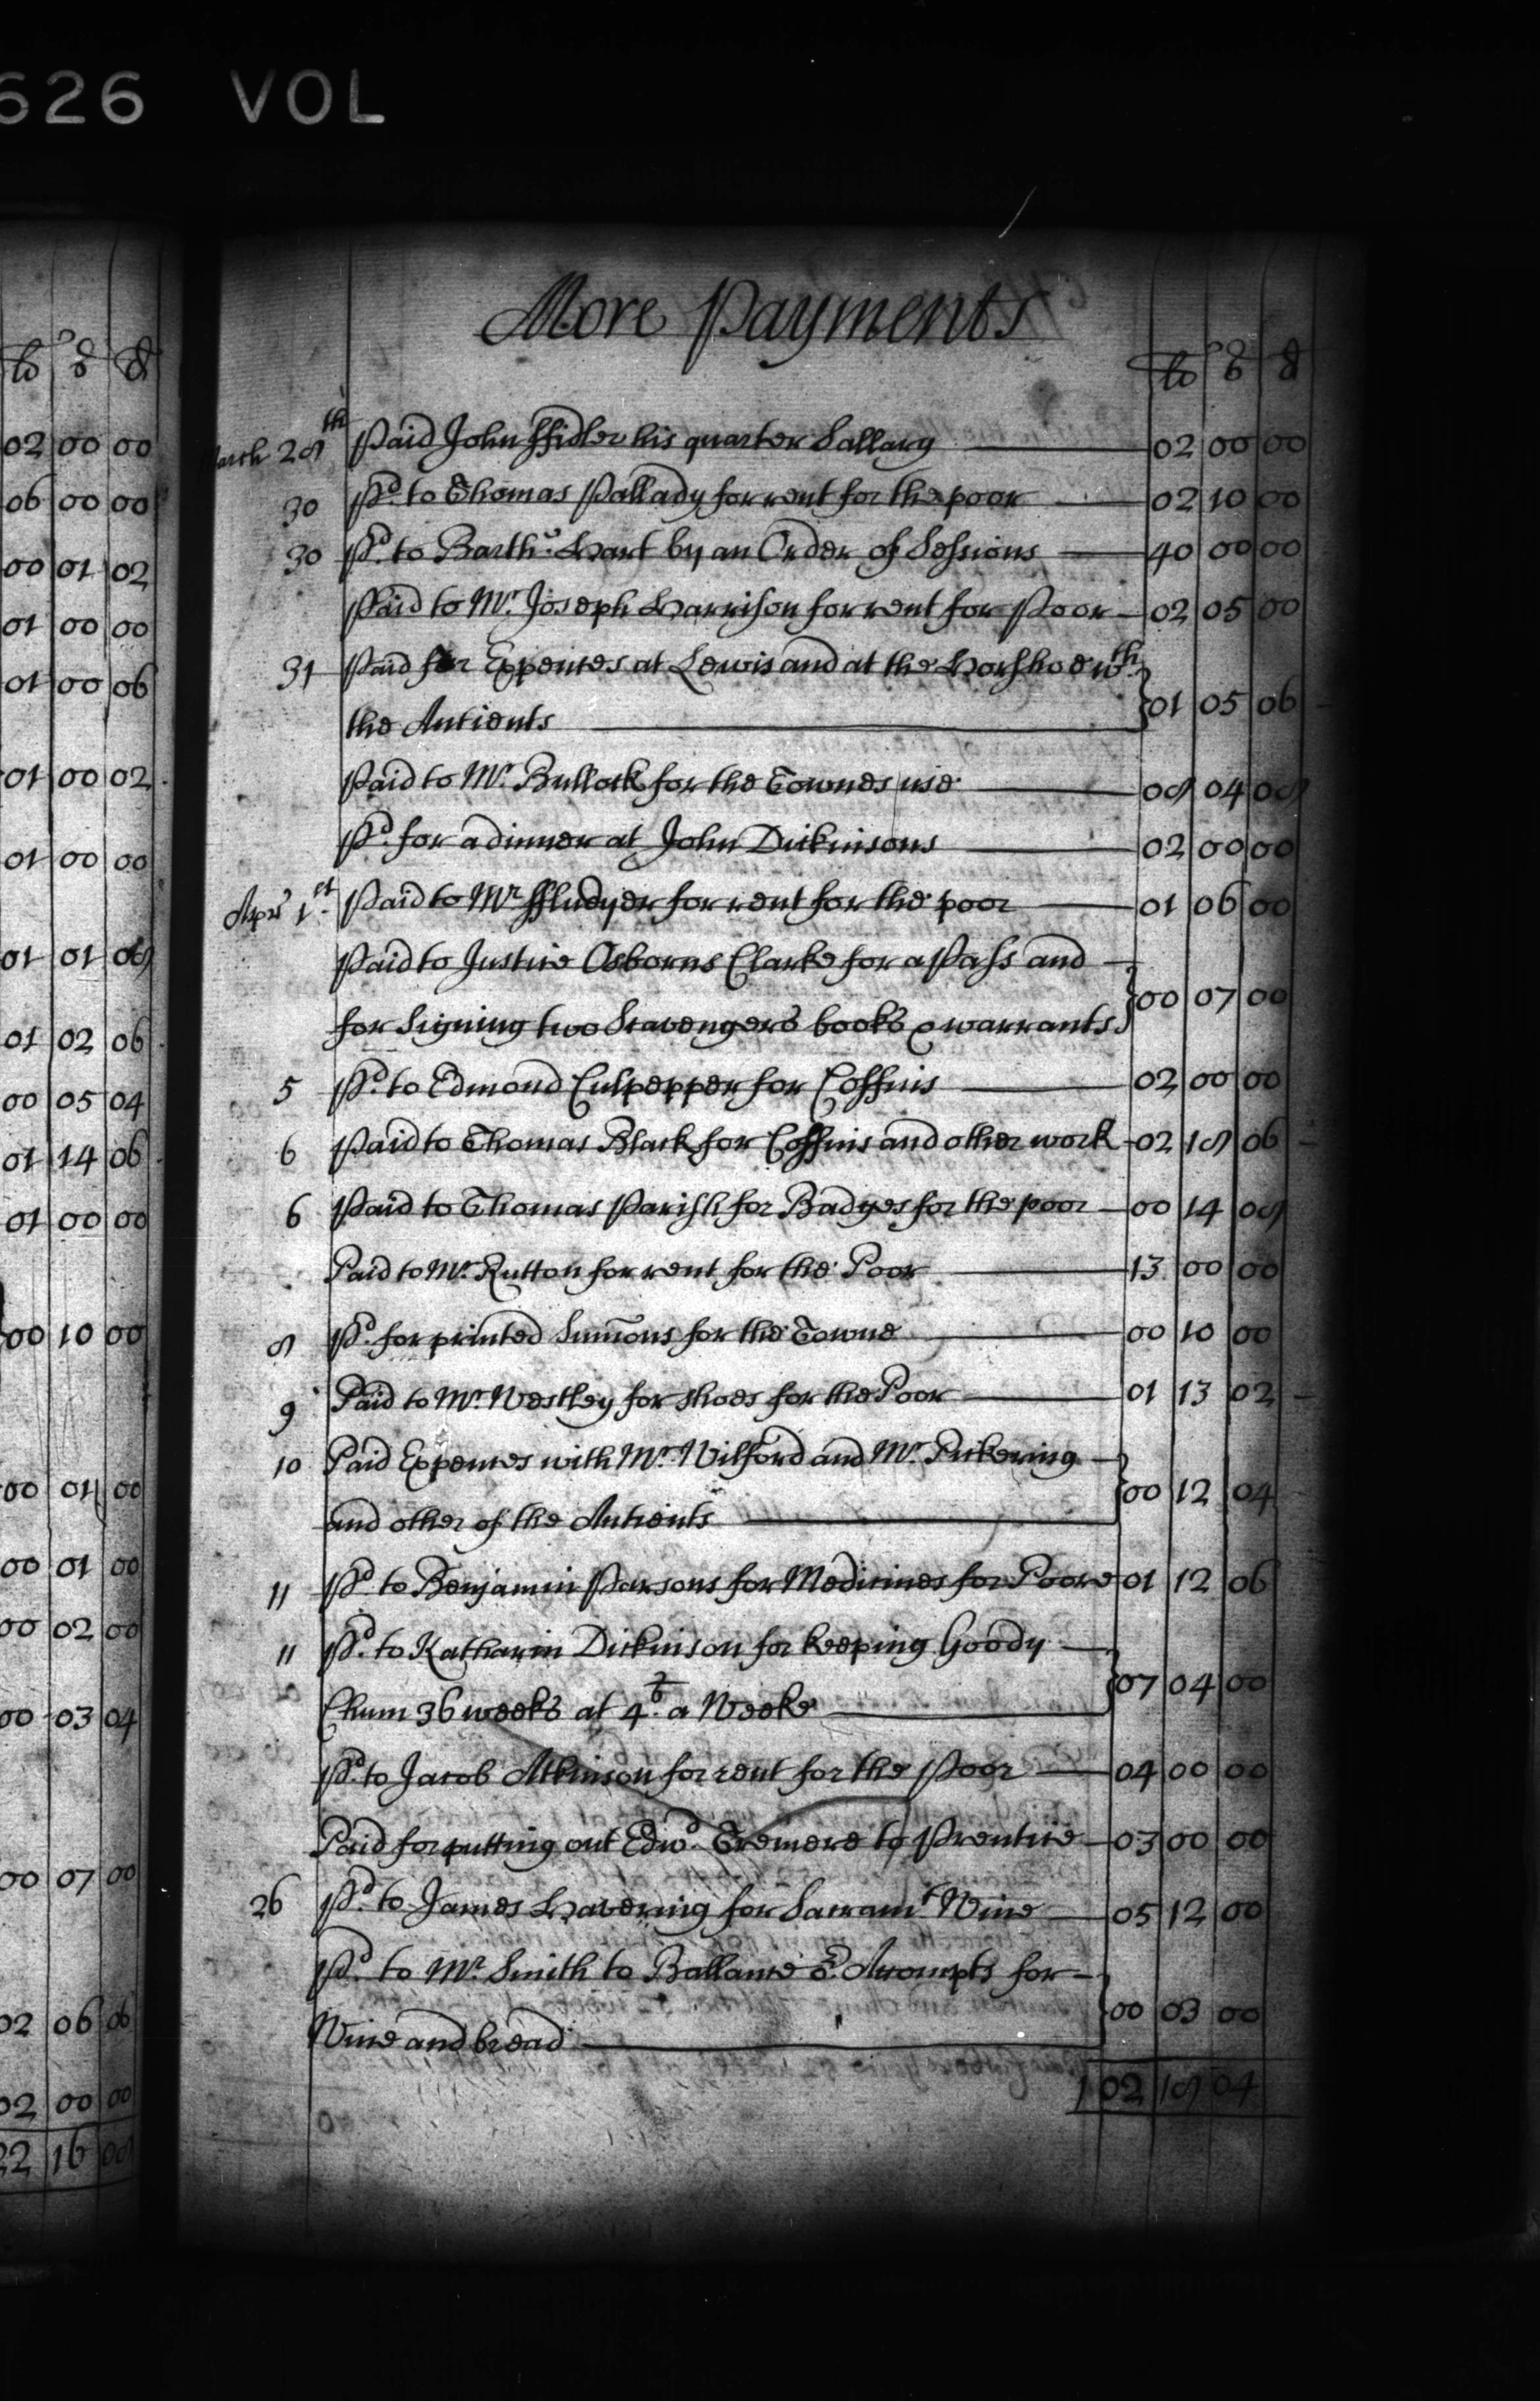 626 VOL
lb s d
02 00 00
06 00 00
00 01 02
01 00 00
01 00 06
01 00 02
01 00 00
01 01 08
01 02 06
00 05 04
01 14 06
01 00 00
00 10 00
00 01 00
00 01 00
00 02 00
00 03 04
00 07 00
02 06 06
02 00 00
22 16 08
More Payments
lb s d
March 28th Paid John Fidler his quarter Sallary 02 00 00
30 Pd. to Thomas Pallady for rent for the poor 02 10 00
30 Pd. to Barth: Hart by an Order of Sessions 40 00 00
Paid to Mr. Joseph Harrison for rent for Poor 02 05 00
31 Paid for Expences at Lewis and at the Horshoe wth.
the Antients 01 05 06
Paid to Mr. Bullock for the Townes use 08 04 08
Pd. for a dinner at John Dickinsons 02 00 00
Apr 1st. Paid to Mr ffludyer for rent for the poor 01 06 00
Paid to Justice Osborns Clarke for a Pass and
for Signing two Scavengers books & warrants 00 07 00
5 Pd. to Edmond Culpepper for Coffins 02 00 00
6 Paid to Thomas Black for Coffins and other work 02 18 06
6 Paid to Thomas Parish for Badges for the poor 00 14 08
Paid to Mr. Rutton for rent for the Poor 13 00 00
8 Pd. for printed Sumons for the Towne 00 10 00
9 Paid to Mr. Westley for shoes for the Poor 01 13 02
10 Paid Expences with Mr. Wilford and Mr. Pickering
and other of the Antients 00 12 04
11 Pd. to Benjamin Parsons for Medicines for Poore 01 12 06
11 Pd. to Katharin Dickinson for keeping Goody
Chum 36 weeks at 4s. a Weeke 07 04 00
Pd. to Jacob Atkinson for rent for the Poor 04 00 00
Paid for putting out Edwd. Tremere to Prentice 03 00 00
26 Pd. to James Havering for Sacramt Wine 05 12 00
Pd. to Mr. Smith to Ballance Accompts for
Wine and bread 00 03 00
102 18 04